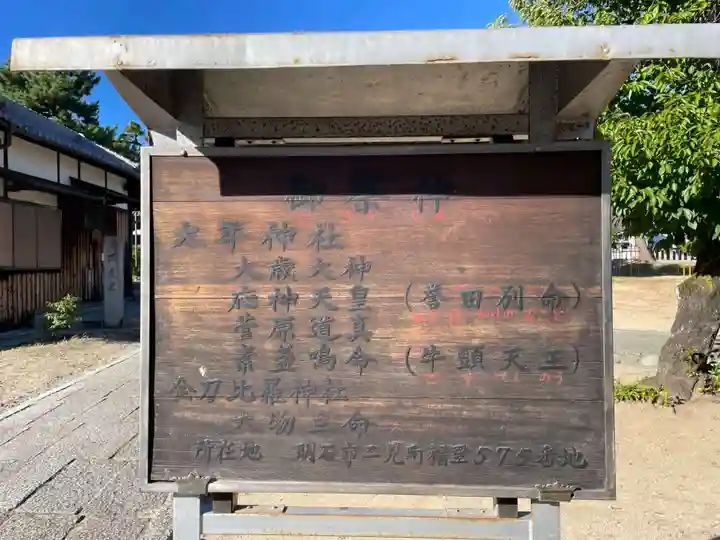 御祭神
大年神社
大歳大神
応神天皇（誉田別命）
菅原道真
素盞鳴命（牛頭天王）
金刀比羅神社
大物主命
所在地 明石市二見町福里575番地